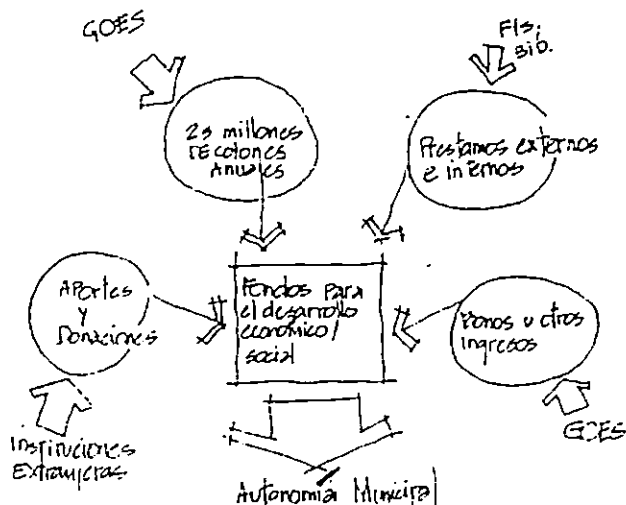 GOES
FIS,
BID.
25 millones
DE colones
Anuales
Prestamos externos
e internos
Aportes
y
Donaciones
Fondos para
el desarrollo
económico/
social
Bonos u otros
ingresos
Instituciones
Extranjeras
GOES
Autonomía Municipal